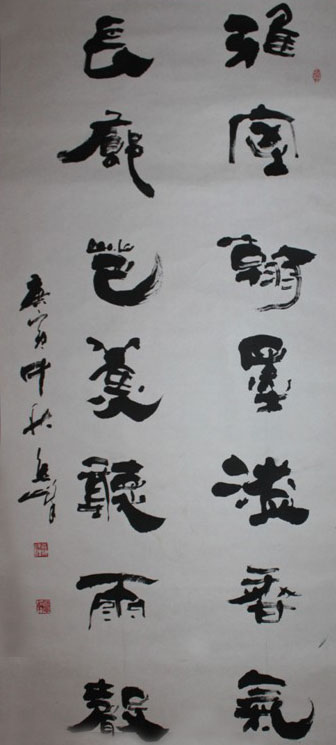 雅室翰墨溢香氣
長廊芭蕉聽雨聲
庚寅仲秋